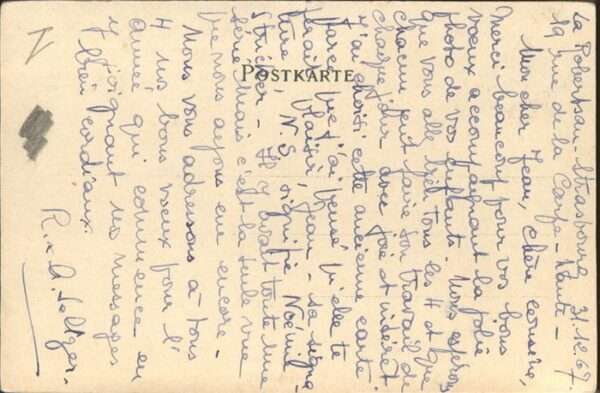 POSTKARTE
La Robertsau-Strasbourg 31.12.67.
19 rue de la Carpe-Haute -
Mon cher Jean, chère cousine,
Merci beaucoup pour vos bons
vœux accompagnant la jolie
photo de vos enfants. Nous espérons
que vous alle bien tous les 4 et que
chacun peut faire son travail de
chaque jour avec joie et intérêt.
J'ai choisi cette ancienne carte
parce que j'ai pensé qu'elle te
ferait plaisir, Jean - la signa-
ture N.S. signifie Noémi
- Il y avait toute une
série mais c'est la seule vue
que nous ayons eu encore -
Nous vous adressons à tous
4 nos bons vœux pour l'
année qui commence en
y joignant nos messages
bien cordiaux.
R. A. Seltzer.